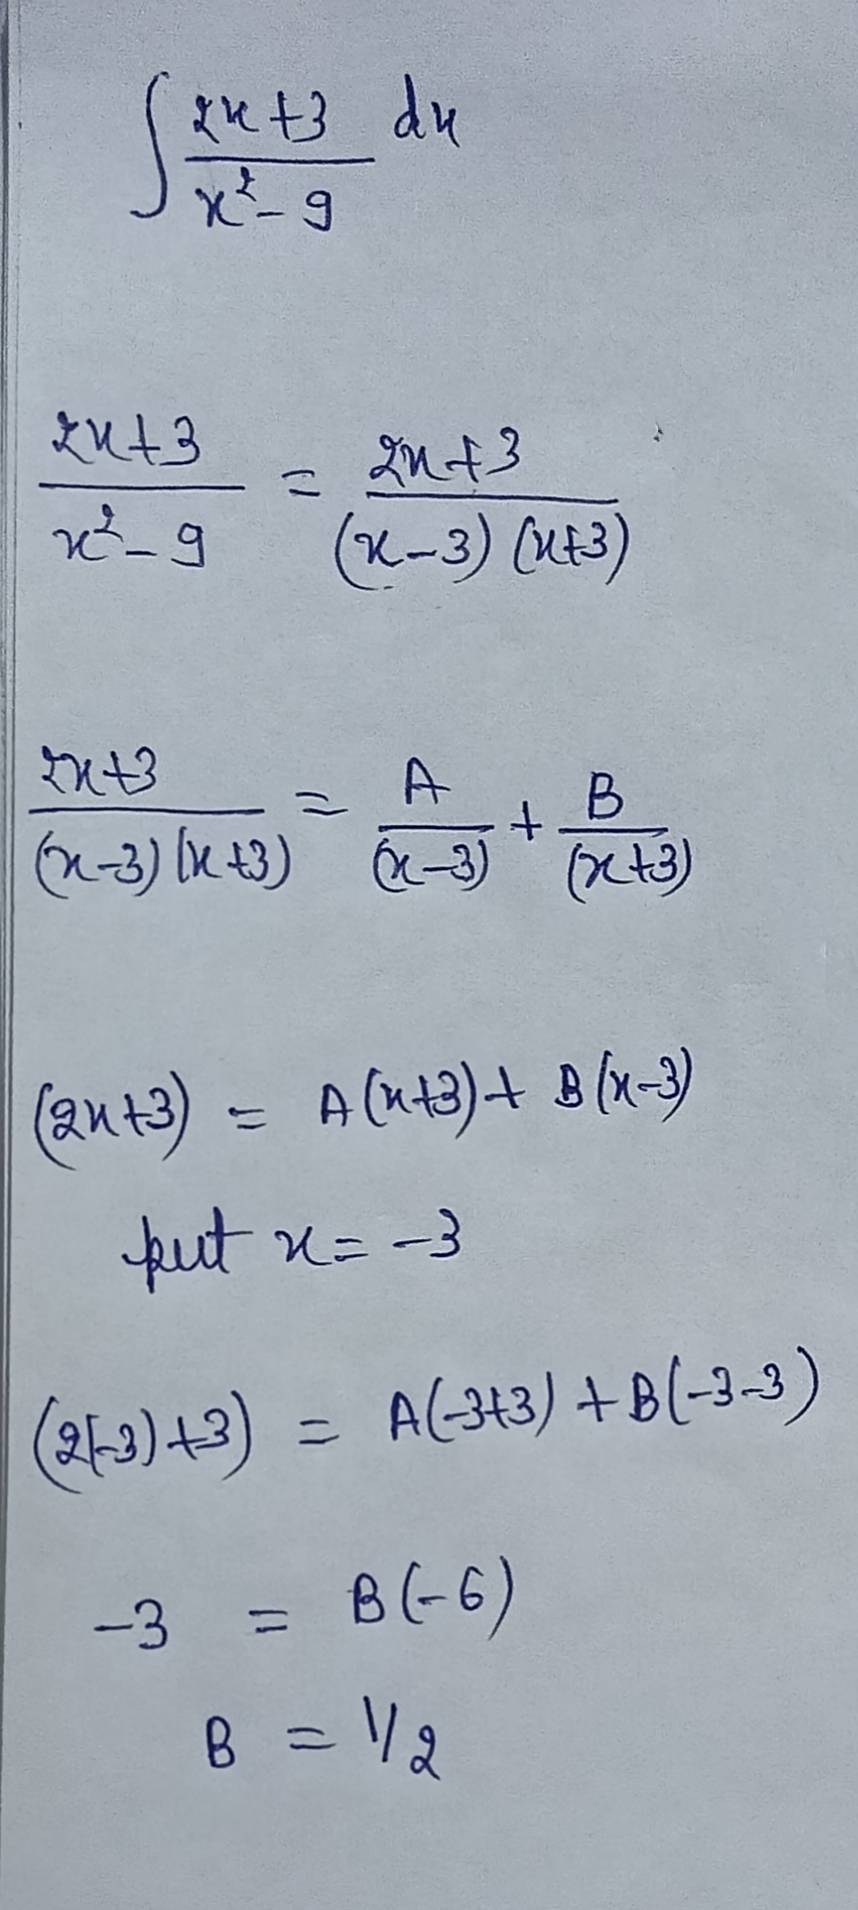 ∫ (2x+3)/(x²-9) dx
(2x+3)/(x²-9) = (2x+3)/((x-3)(x+3))
(2x+3)/((x-3)(x+3)) = A/(x-3) + B/(x+3)
(2x+3) = A(x+3) + B(x-3)
put x = -3
(2(-3)+3) = A(-3+3) + B(-3-3)
-3 = B(-6)
B = 1/2